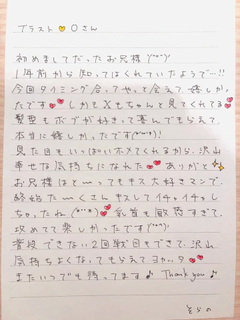 プラスト💛Oさん
初めましてだったお兄様(*^^*)
1年前から知ってはくれていたようで…!!
今回タイミング合ってやっと会えて嬉しかっ
たです💕しかもXもちゃんと見てくれてる
髪型もボブが好きって喜んでもらえて
本当に嬉しかったです(*^^*)!
見た目もいっぱいホメてくれるから、沢山
幸せな気持ちになれた💕ありがとう✨
お兄様はと〜ってもキス大好きマンで、
終始た〜くさんキスしてイチャイチャし
ちゃったね(*^^*)💕乳首も敏感すぎて、
攻めてて楽しかったです(*^^*)
普段できない2回戦目もできて、沢山
気持ちよくなってもらえてヨカッタ💕
またいつでも待ってます♪ Thank you♪